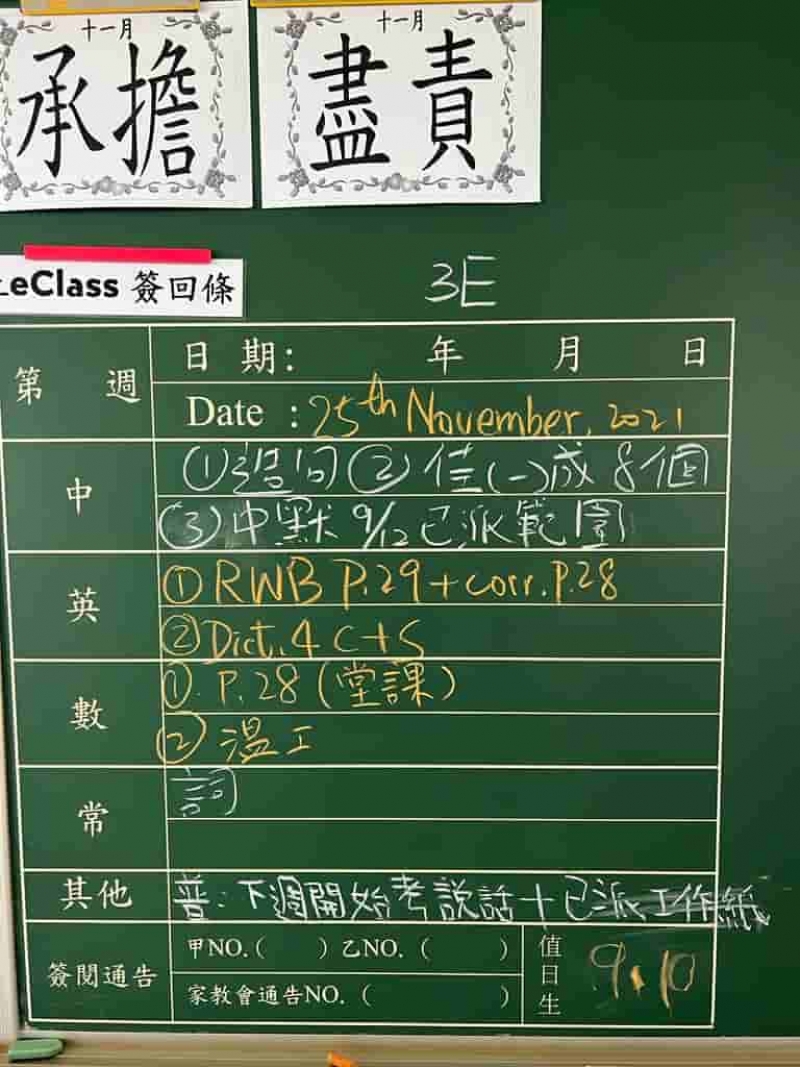 十一月
承擔
十一月
盡責
eClass 簽回條
3E
第 週
日 期: 年 月 日
Date : 25th November, 2021
中
①造句 ②佳(一)成8個
(3)中默 9/12 已派範圍
英
①RWB P.29+corr.P.28
②Dict.4 C+S
數
①. P.28 (堂課)
② 溫工
常
詞
其他
普:下週開始考説話+已派工作紙
簽閱通告
甲NO.( ) 乙NO. ( )
家教會通告NO. ( )
值日生
9、10